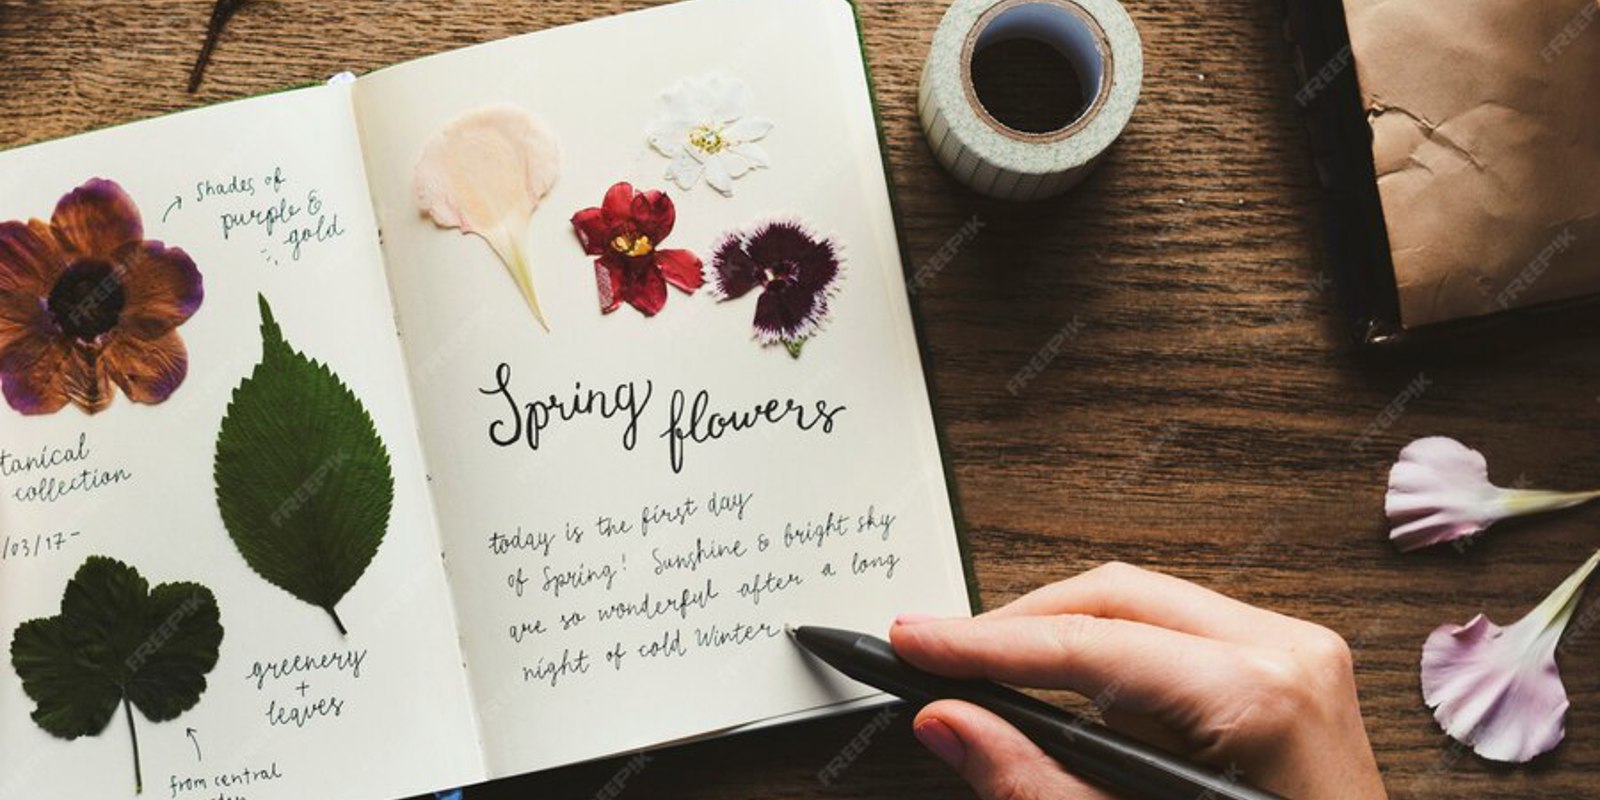 shades of
purple &
gold
tanical
collection
/03/17-
greenery
+
leaves
from central
Spring flowers
today is the first day
of Spring! Sunshine & bright sky
are so wonderful after a long
night of cold Winter